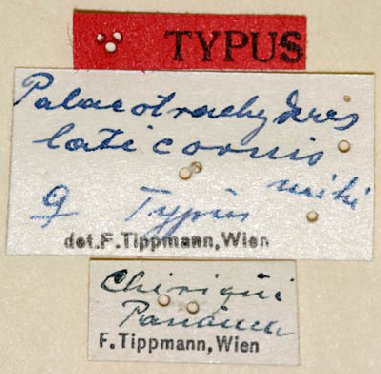 TYPUS
Palaeotrachyderes
laticornis
mihi
♀ Typus
det.F.Tippmann,Wien
Chiriqui
Panama
F.Tippmann, Wien